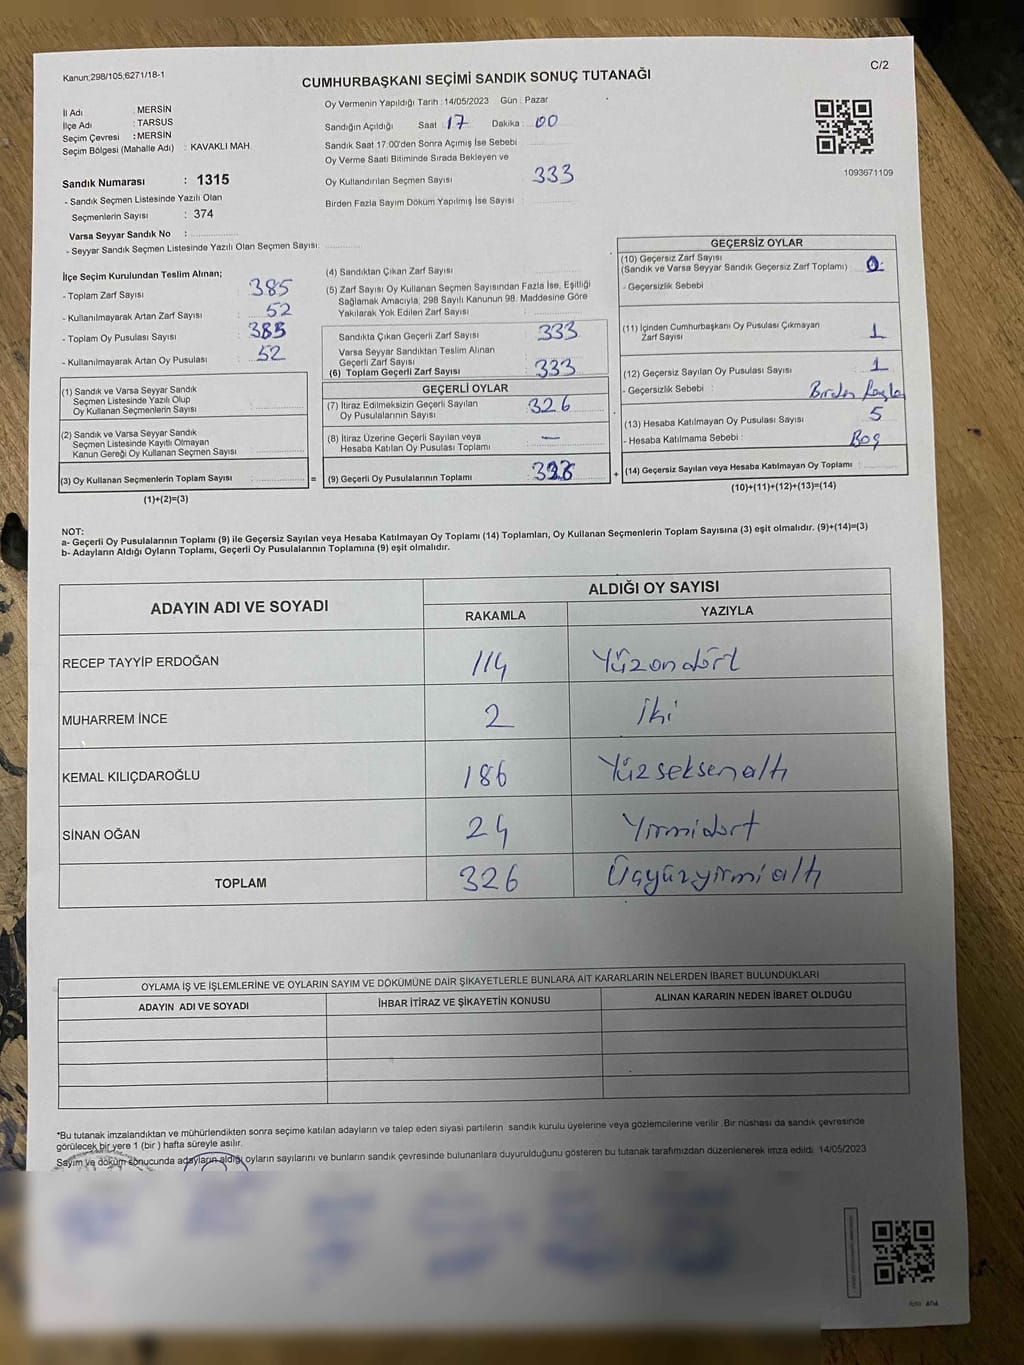 Kanun;298/105,6271/18-1
C/2
CUMHURBAŞKANI SEÇİMİ SANDIK SONUÇ TUTANAĞI
İl Adı : MERSİN
İlçe Adı : TARSUS
Seçim Çevresi : MERSİN
Seçim Bölgesi (Mahalle Adı) : KAVAKLI MAH.
Sandık Numarası : 1315
- Sandık Seçmen Listesinde Yazılı Olan
Seçmenlerin Sayısı : 374
Varsa Seyyar Sandık No :
- Seyyar Sandık Seçmen Listesinde Yazılı Olan Seçmen Sayısı:
Oy Vermenin Yapıldığı Tarih : 14/05/2023 Gün : Pazar
Sandığın Açıldığı Saat : 17 Dakika : 00
Sandık Saat 17:00'den Sonra Açımış İse Sebebi
Oy Verme Saati Bitiminde Sırada Bekleyen ve
Oy Kullandırılan Seçmen Sayısı 333
Birden Fazla Sayım Döküm Yapılmış İse Sayısı :
1093671109
İlçe Seçim Kurulundan Teslim Alınan;
- Toplam Zarf Sayısı : 385
- Kullanılmayarak Artan Zarf Sayısı : 52
- Toplam Oy Pusulası : 385
- Kullanılmayarak Artan Oy Pusulası : 52
(1) Sandık ve Varsa Seyyar Sandık
Seçmen Listesinde Yazılı Olup
Oy Kullanan Seçmenlerin Sayısı :
(2) Sandık ve Varsa Seyyar Sandık
Seçmen Listesinde Kayıtlı Olmayan
Kanun Gereği Oy Kullanan Seçmen Sayısı :
(3) Oy Kullanan Seçmenlerin Toplam Sayısı :
(1)+(2)=(3)
(4) Sandıktan Çıkan Zarf Sayısı
(5) Zarf Sayısı Oy Kullanan Seçmen Sayısından Fazla İse, Eşitliği
Sağlamak Amacıyla, 298 Sayılı Kanunun 98. Maddesine Göre
Yakılarak Yok Edilen Zarf Sayısı :
Sandıkta Çıkan Geçerli Zarf Sayısı 333
Varsa Seyyar Sandıktan Teslim Alınan
Geçerli Zarf Sayısı
(6) Toplam Geçerli Zarf Sayısı : 333
GEÇERLİ OYLAR
(7) İtiraz Edilmeksizin Geçerli Sayılan
Oy Pusulalarının Sayısı : 326
(8) İtiraz Üzerine Geçerli Sayılan veya
Hesaba Katılan Oy Pusulası Toplamı : —
= (9) Geçerli Oy Pusulalarının Toplamı : 326
GEÇERSİZ OYLAR
(10) Geçersiz Zarf Sayısı
(Sandık ve Varsa Seyyar Sandık Geçersiz Zarf Toplamı) : 0
- Geçersizlik Sebebi
(11) İçinden Cumhurbaşkanı Oy Pusulası Çıkmayan
Zarf Sayısı 1
(12) Geçersiz Sayılan Oy Pusulası Sayısı : 1
- Geçersizlik Sebebi : Birden fazla
(13) Hesaba Katılmayan Oy Pusulası Sayısı 5
- Hesaba Katılmama Sebebi : Boş
+ (14) Geçersiz Sayılan veya Hesaba Katılmayan Oy Toplamı :
(10)+(11)+(12)+(13)=(14)
NOT:
a- Geçerli Oy Pusulalarının Toplamı (9) ile Geçersiz Sayılan veya Hesaba Katılmayan Oy Toplamı (14) Toplamları, Oy Kullanan Seçmenlerin Toplam Sayısına (3) eşit olmalıdır. (9)+(14)=(3)
b- Adayların Aldığı Oyların Toplamı, Geçerli Oy Pusulalarının Toplamına (9) eşit olmalıdır.
ADAYIN ADI VE SOYADI
ALDIĞI OY SAYISI
RAKAMLA YAZIYLA
RECEP TAYYİP ERDOĞAN 114 Yüzondört
MUHARREM İNCE 2 İki
KEMAL KILIÇDAROĞLU 186 Yüzseksenaltı
SİNAN OĞAN 24 Yirmidört
TOPLAM 326 Üçyüzyirmialtı
OYLAMA İŞ VE İŞLEMLERİNE VE OYLARIN SAYIM VE DÖKÜMÜNE DAİR ŞİKAYETLERLE BUNLARA AİT KARARLARIN NELERDEN İBARET BULUNDUKLARI
ADAYIN ADI VE SOYADI İHBAR İTİRAZ VE ŞİKAYETİN KONUSU ALINAN KARARIN NEDEN İBARET OLDUĞU
*Bu tutanak imzalandıktan ve mühürlendikten sonra seçime katılan adayların ve talep eden siyasi partilerin sandık kurulu üyelerine veya gözlemcilerine verilir .Bir nüshası da sandık çevresinde
görülecek bir yere 1 (bir ) hafta süreyle asılır.
Sayım ve döküm sonucunda adayların aldığı oyların sayılarını ve bunların sandık çevresinde bulunanlara duyurulduğunu gösteren bu tutanak tarafımızdan düzenlenerek imza edildi. 14/05/2023